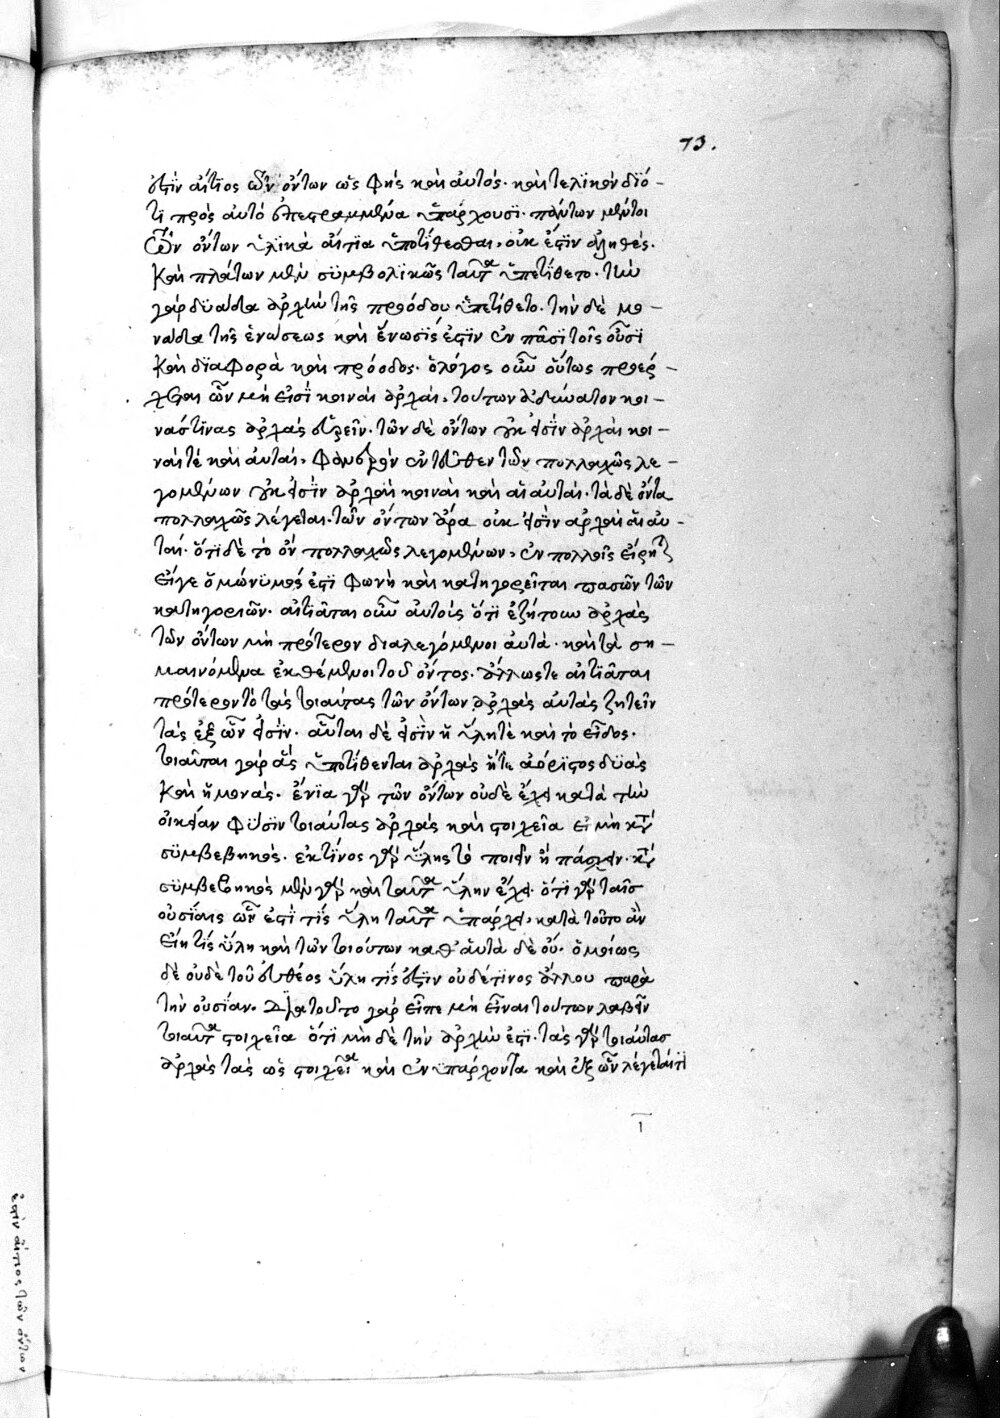 73.
ἐστὶν αἴτιος τῶν ὄντων ὡς φὴς καὶ αὐτός. καὶ τελικὸν διό-
τι πρὸς αὐτὸ ἐπεστραμμένα ὑπάρχουσι. πάντων μέντοι
τῶν ὄντων ὑλικὰ αἴτια ὑποτίθεσθαι, οὐκ ἔστιν ἀληθές.
Καὶ πλάτων μὲν συμβολικῶς ταῦτα ὑπετίθετο. τὴν
γὰρ δυάδα ἀρχὴν τῆς προόδου ὑπετίθετο. τὴν δὲ μο-
νάδα τῆς ἑνώσεως καὶ ἕνωσίς ἐστιν ἐν πᾶσι τοῖς οὖσι
Καὶ διαφορὰ καὶ πρόοδος. ὁ λόγος οὖν οὕτως προέρ-
χεται ὧν μή εἰσι κοιναὶ ἀρχαὶ, τούτων ἀδύνατον κοι-
νάς τινας ἀρχὰς εὑρεῖν. τῶν δὲ ὄντων οὐκ εἰσὶν ἀρχαὶ κοι-
ναί τε καὶ αὐταί, φανερὸν ἐντεῦθεν τῶν πολλαχῶς λε-
γομένων οὐκ εἰσὶν ἀρχαὶ κοιναὶ καὶ αἱ αὐταί. τὰ δὲ ὄντα
πολλαχῶς λέγεται. τῶν ὄντων ἄρα οὐκ εἰσὶν ἀρχαὶ αἱ αὐ-
ταί. ὅτι δὲ τὸ ὂν πολλαχῶς λεγομένων, ἐν πολλοῖς εἴρηται
εἴγε ὁμώνυμός ἐστι φωνὴ καὶ κατηγορεῖται πασῶν τῶν
κατηγοριῶν. αἰτιᾶται οὖν αὐτοὺς ὅτι ἐζήτουν ἀρχὰς
τῶν ὄντων μὴ πρότερον διαλεγόμενοι αὐτά. καὶ τὰ ση-
μαινόμενα ἐκθέμενοι τοῦ ὄντος. ἄλλως τε αἰτιᾶται
πρότερον τὸ τὰς τοιαύτας τῶν ὄντων ἀρχὰς αὐτὰς ζητεῖν
τὰς ἐξ ὧν εἰσίν. αὗται δέ εἰσιν ἥ ὕλη τὲ καὶ τὸ εἶδος.
τοιαῦται γὰρ ἃς ὑποτίθενται ἀρχὰς ἥ τε ἀόριστος δυὰς
Καὶ ἡ μονάς. ἔνια γὰρ τῶν ὄντων οὐδὲ ἔχει κατὰ τὴν
οἰκείαν φύσιν τοιαύτας ἀρχὰς καὶ στοιχεῖα εἰ μὴ κατὰ
συμβεβηκός. ἐκ τίνος γὰρ ὕλης τὸ ποιεῖν ἢ πάσχειν. κατὰ
συμβεβηκὸς μὲν γὰρ καὶ ταῦτα ὕλην ἔχει. ὅτι γὰρ ταῖς
οὐσίαις ὧν ἐστί τις ὕλη ταῦτα ὑπάρχει, κατὰ τοῦτο ἂν
εἴη τις ὕλη καὶ τῶν τοιούτων καθ' αὑτὰ δὲ οὔ. ὁμοίως
δὲ οὐδὲ τοῦ εὐθέος ὕλη τίς ἐστιν οὐδέ τινος ἄλλου παρὰ
τὴν οὐσίαν. Διὰ τοῦτο γὰρ εἶπε μὴ εἶναι τούτων λαβεῖν
τοιαῦτα στοιχεῖα ὅτι μὴ δὲ τὴν ἀρχήν ἐστι. τὰς γὰρ τοιαύτας
ἀρχὰς τὰς ὡς στοιχεῖα καὶ ἐνυπάρχοντα καὶ ἐξ ὧν λέγεταί τι
ι
ἐστὶν αἴτιος τῶν ὄντων